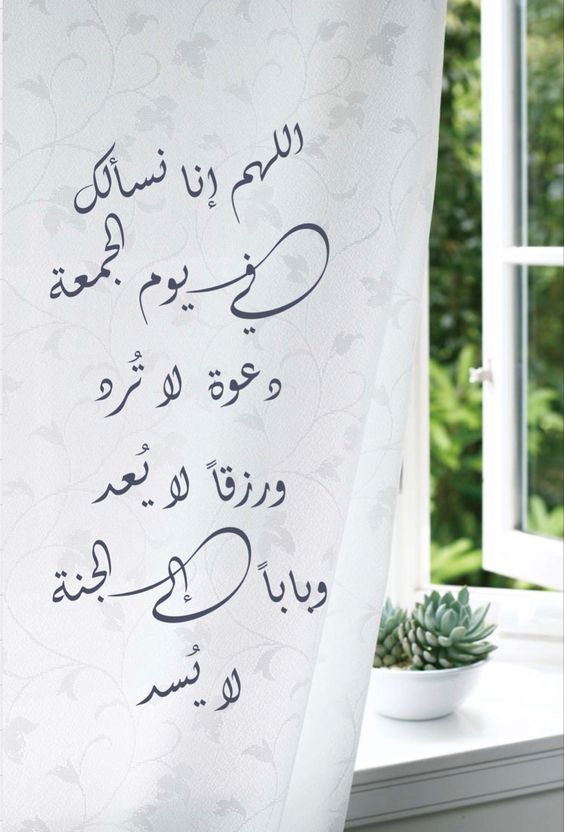 اللهم إنا نسألك
في يوم الجمعة
دعوة لا تُرد
ورزقاً لا يُعد
وباباً إلى الجنة
لا يُسد